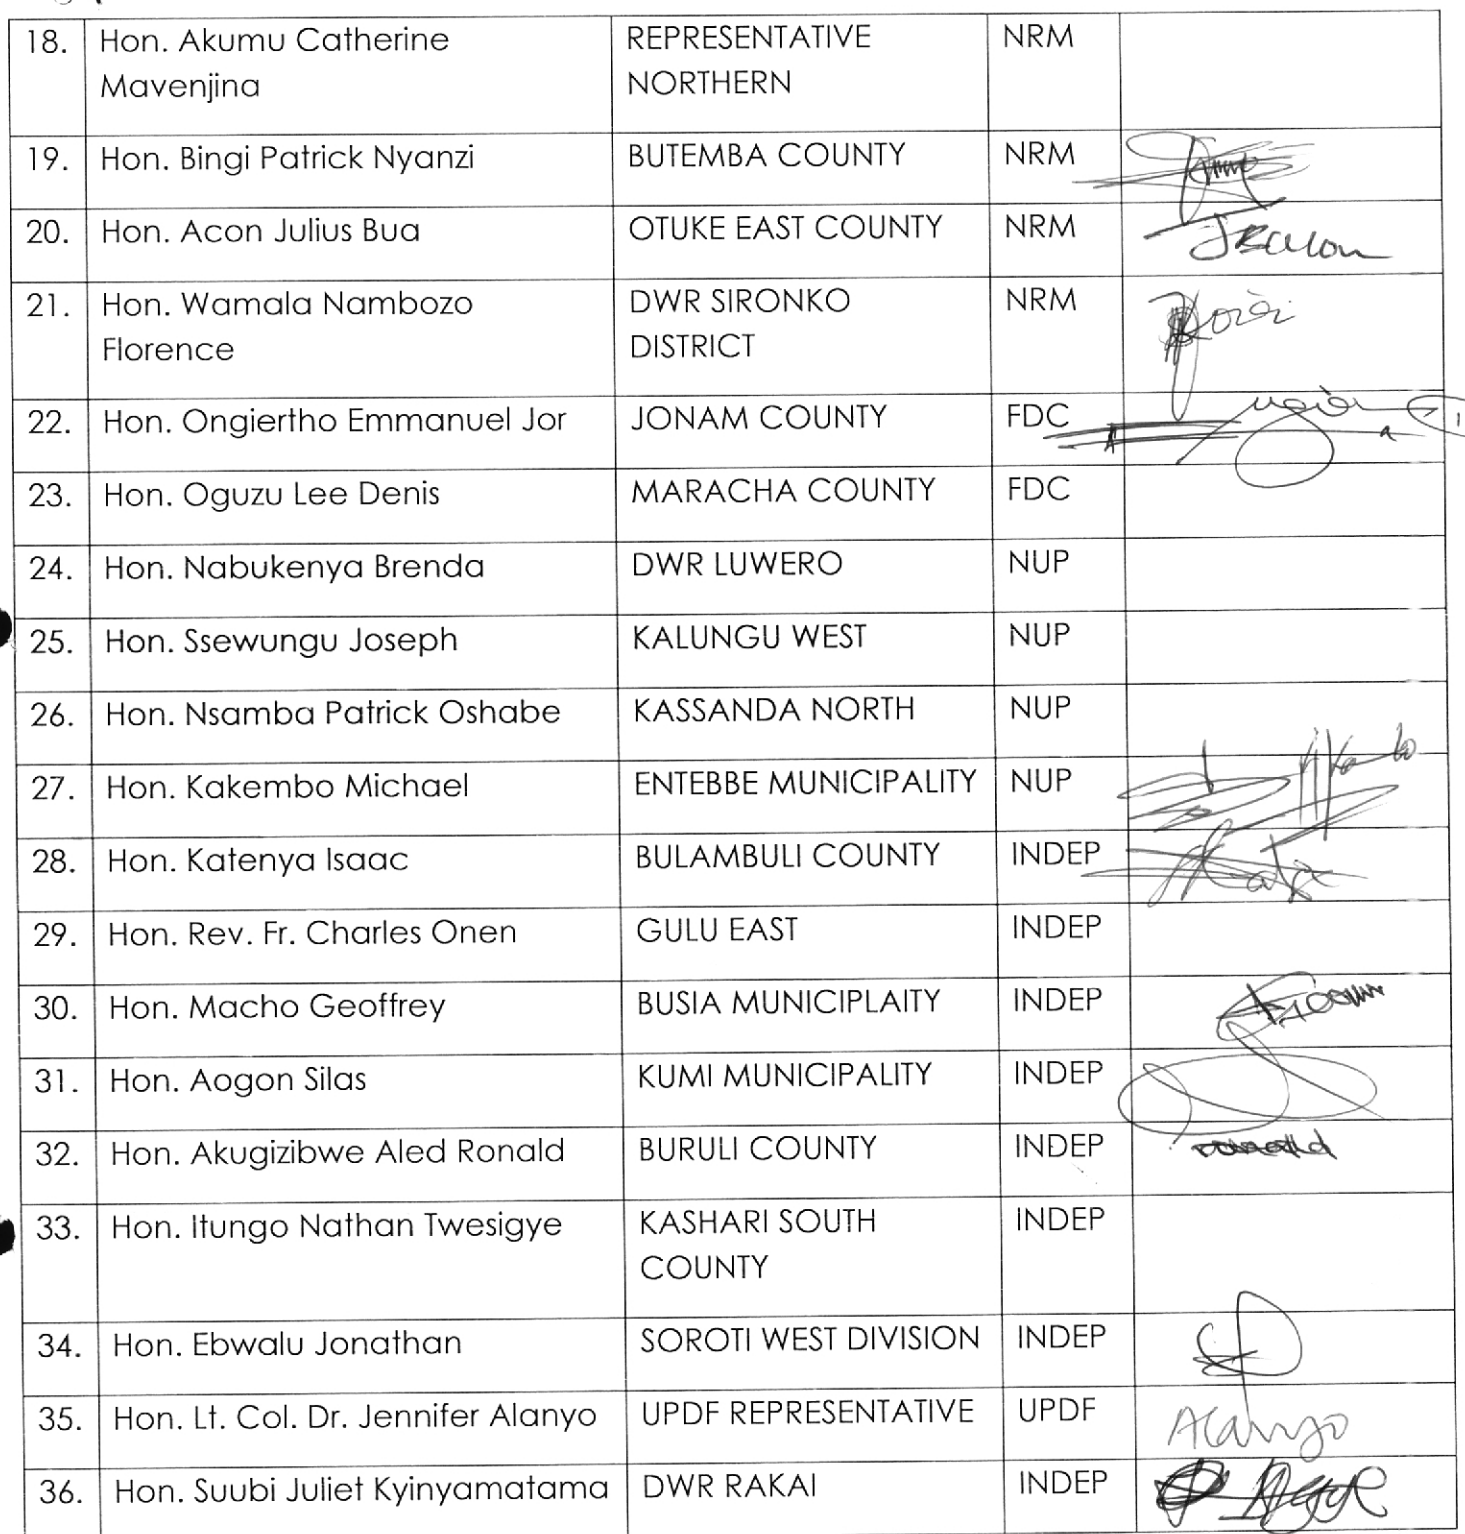 18. Hon. Akumu Catherine REPRESENTATIVE NRM
Mavenjina NORTHERN
19. Hon. Bingi Patrick Nyanzi BUTEMBA COUNTY NRM
20. Hon. Acon Julius Bua OTUKE EAST COUNTY NRM
21. Hon. Wamala Nambozo DWR SIRONKO NRM
Florence DISTRICT
22. Hon. Ongiertho Emmanuel Jor JONAM COUNTY FDC
23. Hon. Oguzu Lee Denis MARACHA COUNTY FDC
24. Hon. Nabukenya Brenda DWR LUWERO NUP
25. Hon. Ssewungu Joseph KALUNGU WEST NUP
26. Hon. Nsamba Patrick Oshabe KASSANDA NORTH NUP
27. Hon. Kakembo Michael ENTEBBE MUNICIPALITY NUP
28. Hon. Katenya Isaac BULAMBULI COUNTY INDEP
29. Hon. Rev. Fr. Charles Onen GULU EAST INDEP
30. Hon. Macho Geoffrey BUSIA MUNICIPLAITY INDEP
31. Hon. Aogon Silas KUMI MUNICIPALITY INDEP
32. Hon. Akugizibwe Aled Ronald BURULI COUNTY INDEP
33. Hon. Itungo Nathan Twesigye KASHARI SOUTH INDEP
COUNTY
34. Hon. Ebwalu Jonathan SOROTI WEST DIVISION INDEP
35. Hon. Lt. Col. Dr. Jennifer Alanyo UPDF REPRESENTATIVE UPDF Alanyo
36. Hon. Suubi Juliet Kyinyamatama DWR RAKAI INDEP